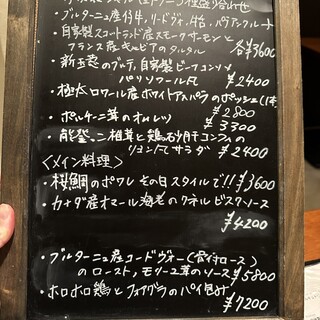 ・ブルターニュ産仔牛、リードヴォー、パテアンクルート
・自家製スコットランド産スモークサーモンと
フランス産キャビアのタルタル 各¥3600
・新玉葱のブーテ、自家製ビーフコンソメ
パリソワール風 ¥2400
・極太ロワール産ホワイトアスパラのポッシェ(1本)
¥2800
・ポルチーニ茸のオムレツ ¥3300
・能登、椎茸と鶏砂肝コンフィの
リヨン風サラダ ¥2400
<メイン料理>
・桜鯛のポワレ その日スタイルで!! ¥3600
・カナダ産オマール海老のクネル ビスクソース
¥4200
・ブルターニュ産コードヴォー(骨付ロース)
のロースト、モリーユ茸のソース ¥5800
・ホロホロ鶏とフォアグラのパイ包み
¥7200